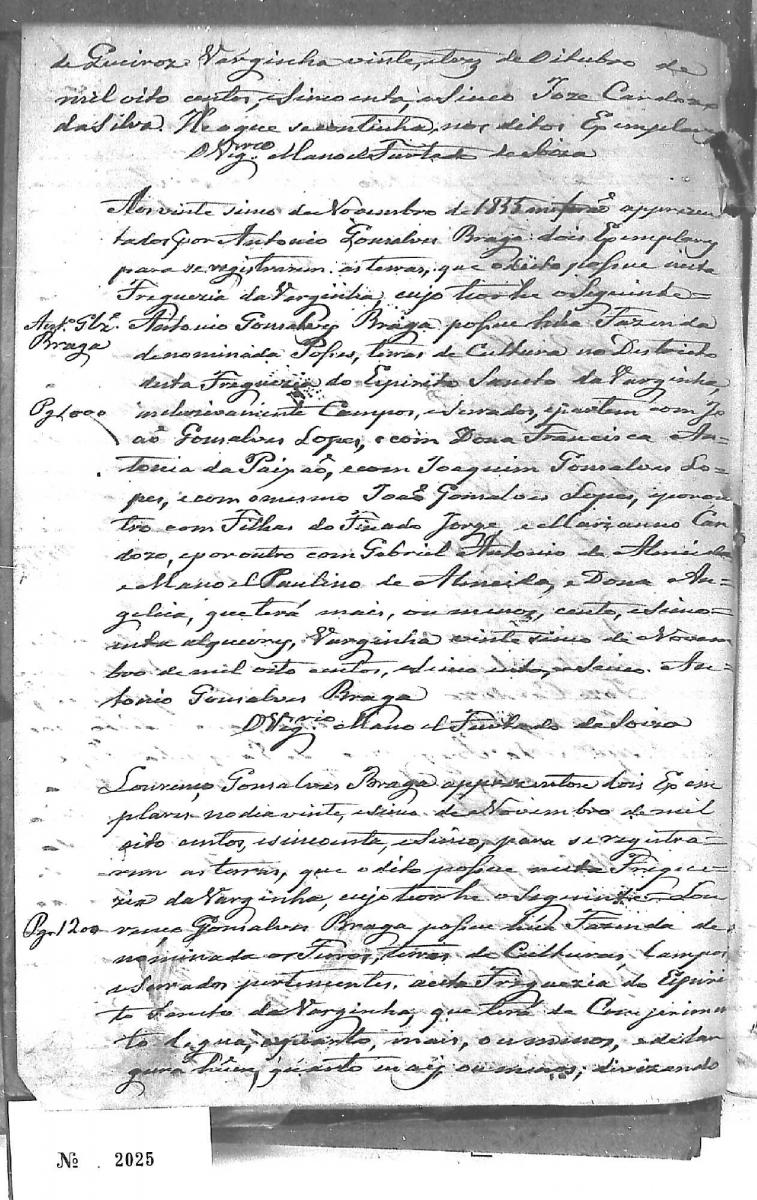 de Queiroz Varginha vinte, e tres de Oitubro de
mil oito centos, e Sincoenta, e Sinco Joze Cardozo
da Silva. He o que se continha, nos ditos Exemplares
O Vigrio Manoel Furtado de Soiza
Aos vinte sinco de Novembro de 1855 apprezen
tados por Antonio Gonsalves Braga dois Exemplares
para se registrarem as terras, que o dito, possue nesta
Freguezia da Varginha, cujo theor he o Seguinte =
Anto Glz Antonio Gonsalves Braga possue hũa Fazenda
Braga denominada Posses, terras de Cultura no Districto
desta Freguezia do Espirito Sancto da Varginha
Pg 1000 inclusivamente Campos, e Serrados, e partem com Jo
aõ Gonsalves Lopes, e com Dona Francisca An-
tonia da Paixaõ, e com Joaquim Gonsalves Lo-
pes, e com o mesmo Joaõ Gonsalves Lopes, e por ou
tro com Filhas do Finado Jorge, e Marianno Car
dozo, e por outro com Gabriel Antonio de Almeida
e Manoel Paulino de Almeida, e Dona An-
gelica, que terá mais, ou menos, cento, e sinco-
enta alqueires, Varginha vinte sinco de Novem
bro de mil oito centos, e sinco enta, e Sinco. An-
tonio Gonsalves Braga
O Vigrio Manoel Furtado de Soiza
Lourenço Gonsalves Braga apprezentou dois Exem
plares no dia vinte, e sinco de Novembro de mil
oito centos, e sincoenta, e Sinco, para se registra-
rem as terras, que o dito possue nesta Fregue-
zia da Varginha, cujo theor he o Seguinte = Lou
Pg. 1200 renço Gonsalves Braga possue hũa Fazenda de
nominada os Furos, terras de Culturas, Campos
e Serrados pertencentes a esta Freguezia do Espiri
to Sancto da Varginha, que terá de Comprimen
to legua, e quanto, mais, ou menos, e de lar
gura quanto mais, ou menos; divizando
Nº 2025